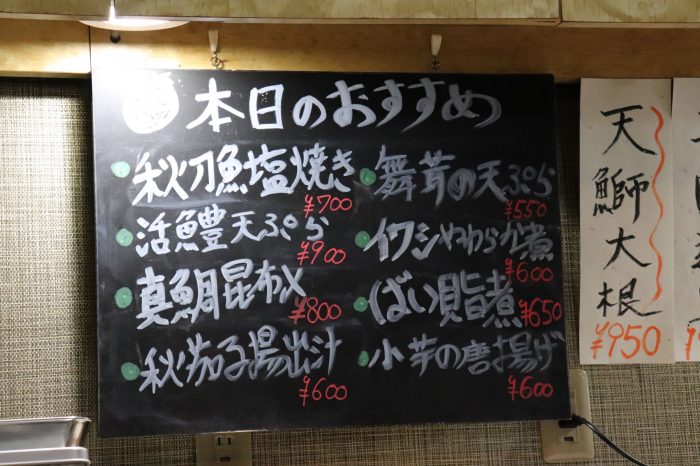 本日のおすすめ
秋刀魚塩焼き
¥700
活鱧天ぷら
¥900
真鯛昆布〆
¥800
秋茄子揚出汁
¥600
舞茸の天ぷら
¥550
イワシやわらか煮
¥600
ばい貝旨煮
¥650
小芋の唐揚げ
¥600
天鰤大根
¥950